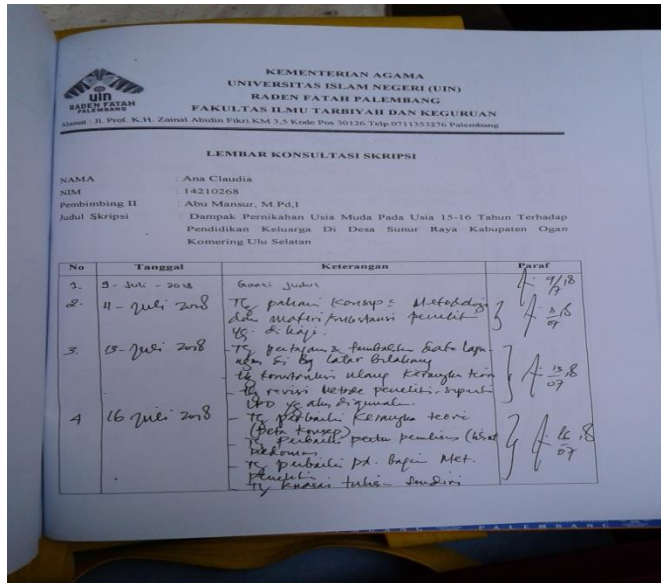 KEMENTERIAN AGAMA
UNIVERSITAS ISLAM NEGERI (UIN)
RADEN FATAH PALEMBANG
FAKULTAS ILMU TARBIYAH DAN KEGURUAN
uin
RADEN FATAH
PALEMBANG
Alamat : Jl. Prof. K.H. Zainal Abidin Fikri KM 3,5 Kode Pos 30126 Telp.0711353276 Palembang
LEMBAR KONSULTASI SKRIPSI
NAMA : Ana Claudia
NIM : 14210268
Pembimbing II : Abu Mansur, M.Pd,I
Judul Skripsi : Dampak Pernikahan Usia Muda Pada Usia 15-16 Tahun Terhadap
Pendidikan Keluarga Di Desa Sumur Raya Kabupaten Ogan
Komering Ulu Selatan
No Tanggal Keterangan Paraf
1. 9 - Juli - 2018 Ganti Judul 9/18
2. 11 - Juli 2018 pahami Konsep = Metodologi 11/18
dan materi/substansi penelit
yg. di kaji.
3. 13 - Juli 2018 - pertajam & tambahkan data lapa 13/18
Latar Belakang 07
- ulang Kerangka teori
- revisi Metode penelitian, seperti
yg akan digunakan
4 16 Juli 2018 - perbaiki Kerangka teori 16/18
(peta konsep) 07
- perbaiki
pedoman
- perbaiki pd. bagian Met.
Penelitian
- tulisan sendiri
PALEMBANG